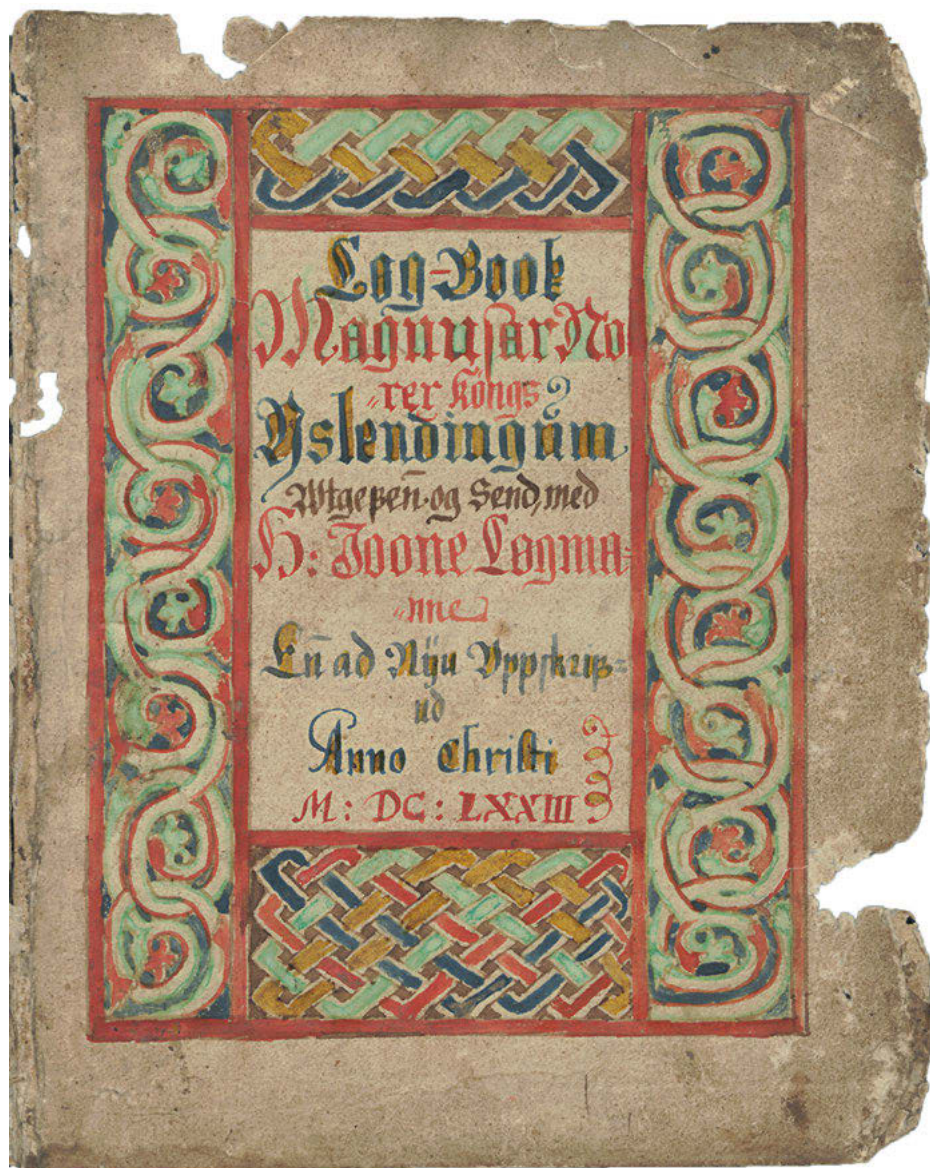 Log-Book
Magnusar No
rer Köngs
Yslendingum
Wtgefen̄ og Send, med
H: Joone Logma=
nne
En̄ ad Nÿu Vppskrif=
ud
Anno Christi
M: DC: LXXIII